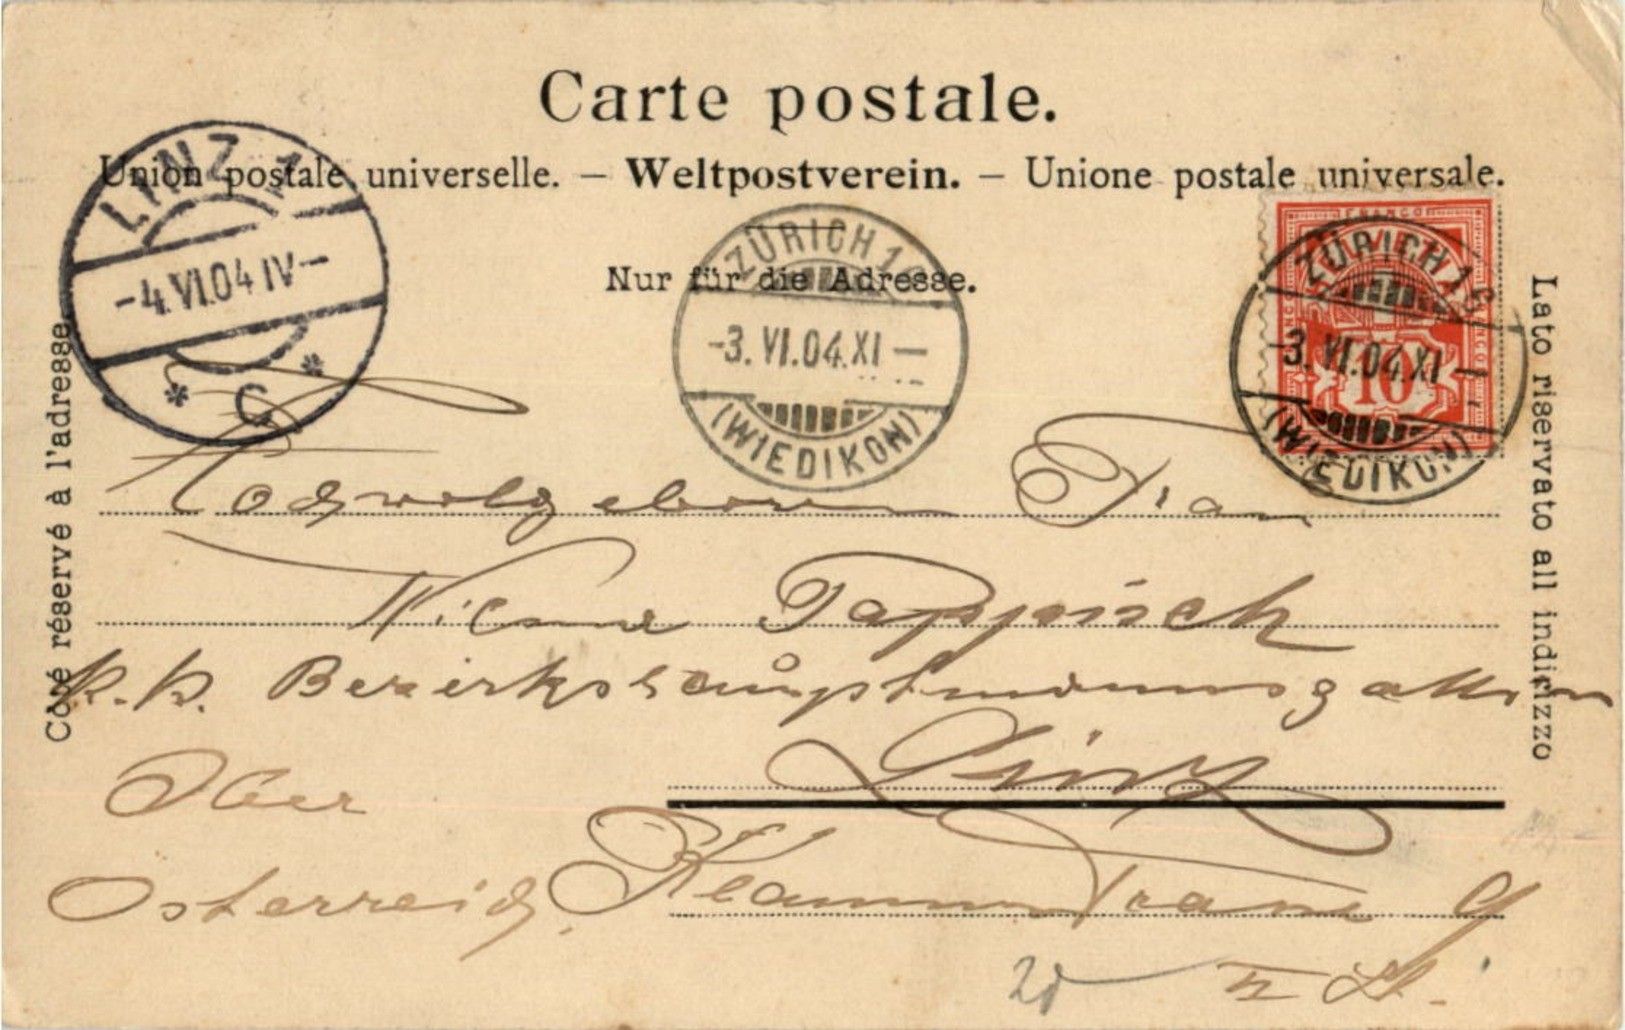 Carte postale.
Union postale universelle. – Weltpostverein. – Unione postale universale.
Nur für die Adresse.
Côté réservé à l'adresse
Lato riservato all indirizzo
LINZ 1
-4.VI.04 IV-
* C *
ZÜRICH 16
-3.VI.04.XI-
(WIEDIKON)
FRANCO
10
ZÜRICH 16
-3.VI.04.XI-
(WIEDIKON)
Hochwolgeboren Frau
Pappisch
k. k. Bezirkshauptmannsgattin
Linz
Ober
Österreich.
9
II St.
20